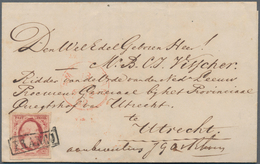 Den Wel Edel Geboren Heer!
Mr. B. C. I. Visscher
Ridder van de Orde van den Ned. Leeuw
Procureur Generaal bij het Provinciaal
Geregtshof van Utrecht
te
Utrecht
FRANCO